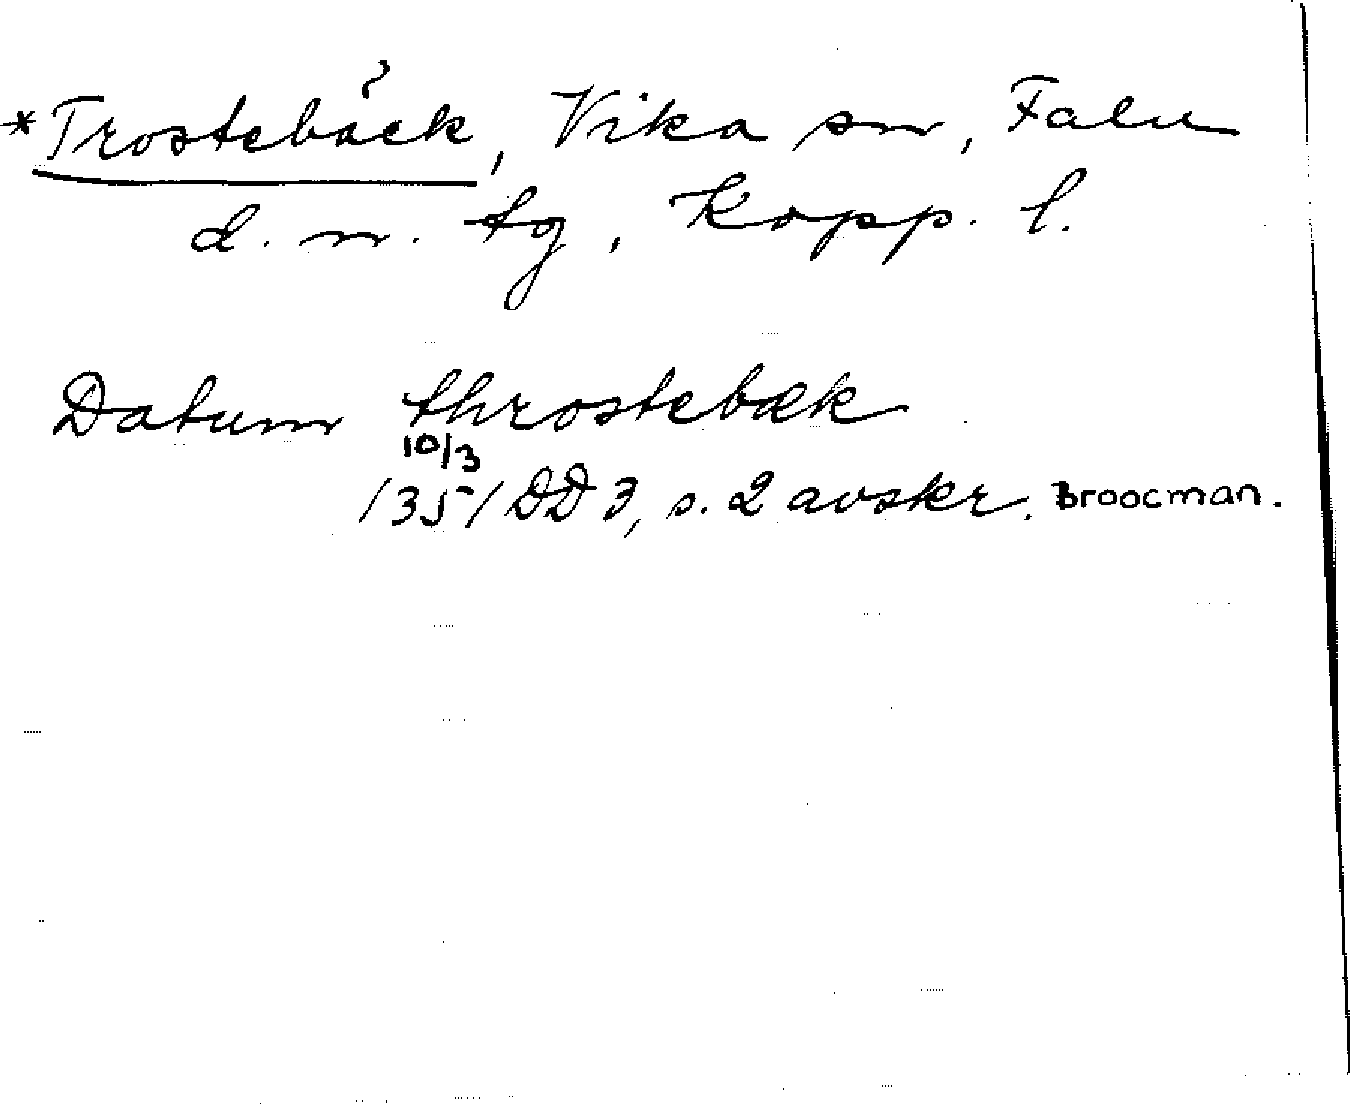 *Trostebäck, Vika sn, Falu
d. n. tg, Kopp. l.
Datum throstebæk
10/3
1351 DD 3, s. 2 avskr. Broocman.